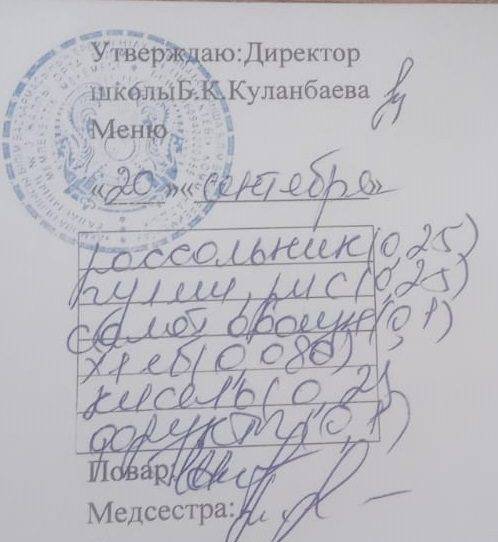 Утверждаю:Директор
школыБ.К.Куланбаева
Меню
«20»«сентебре»
россольник(0,25)
гуляш, рис(0,25)
салат (0,1)
хлеб(0,080)
кисель(0,2)
фрукты(0,1)
Повар:
Медсестра: